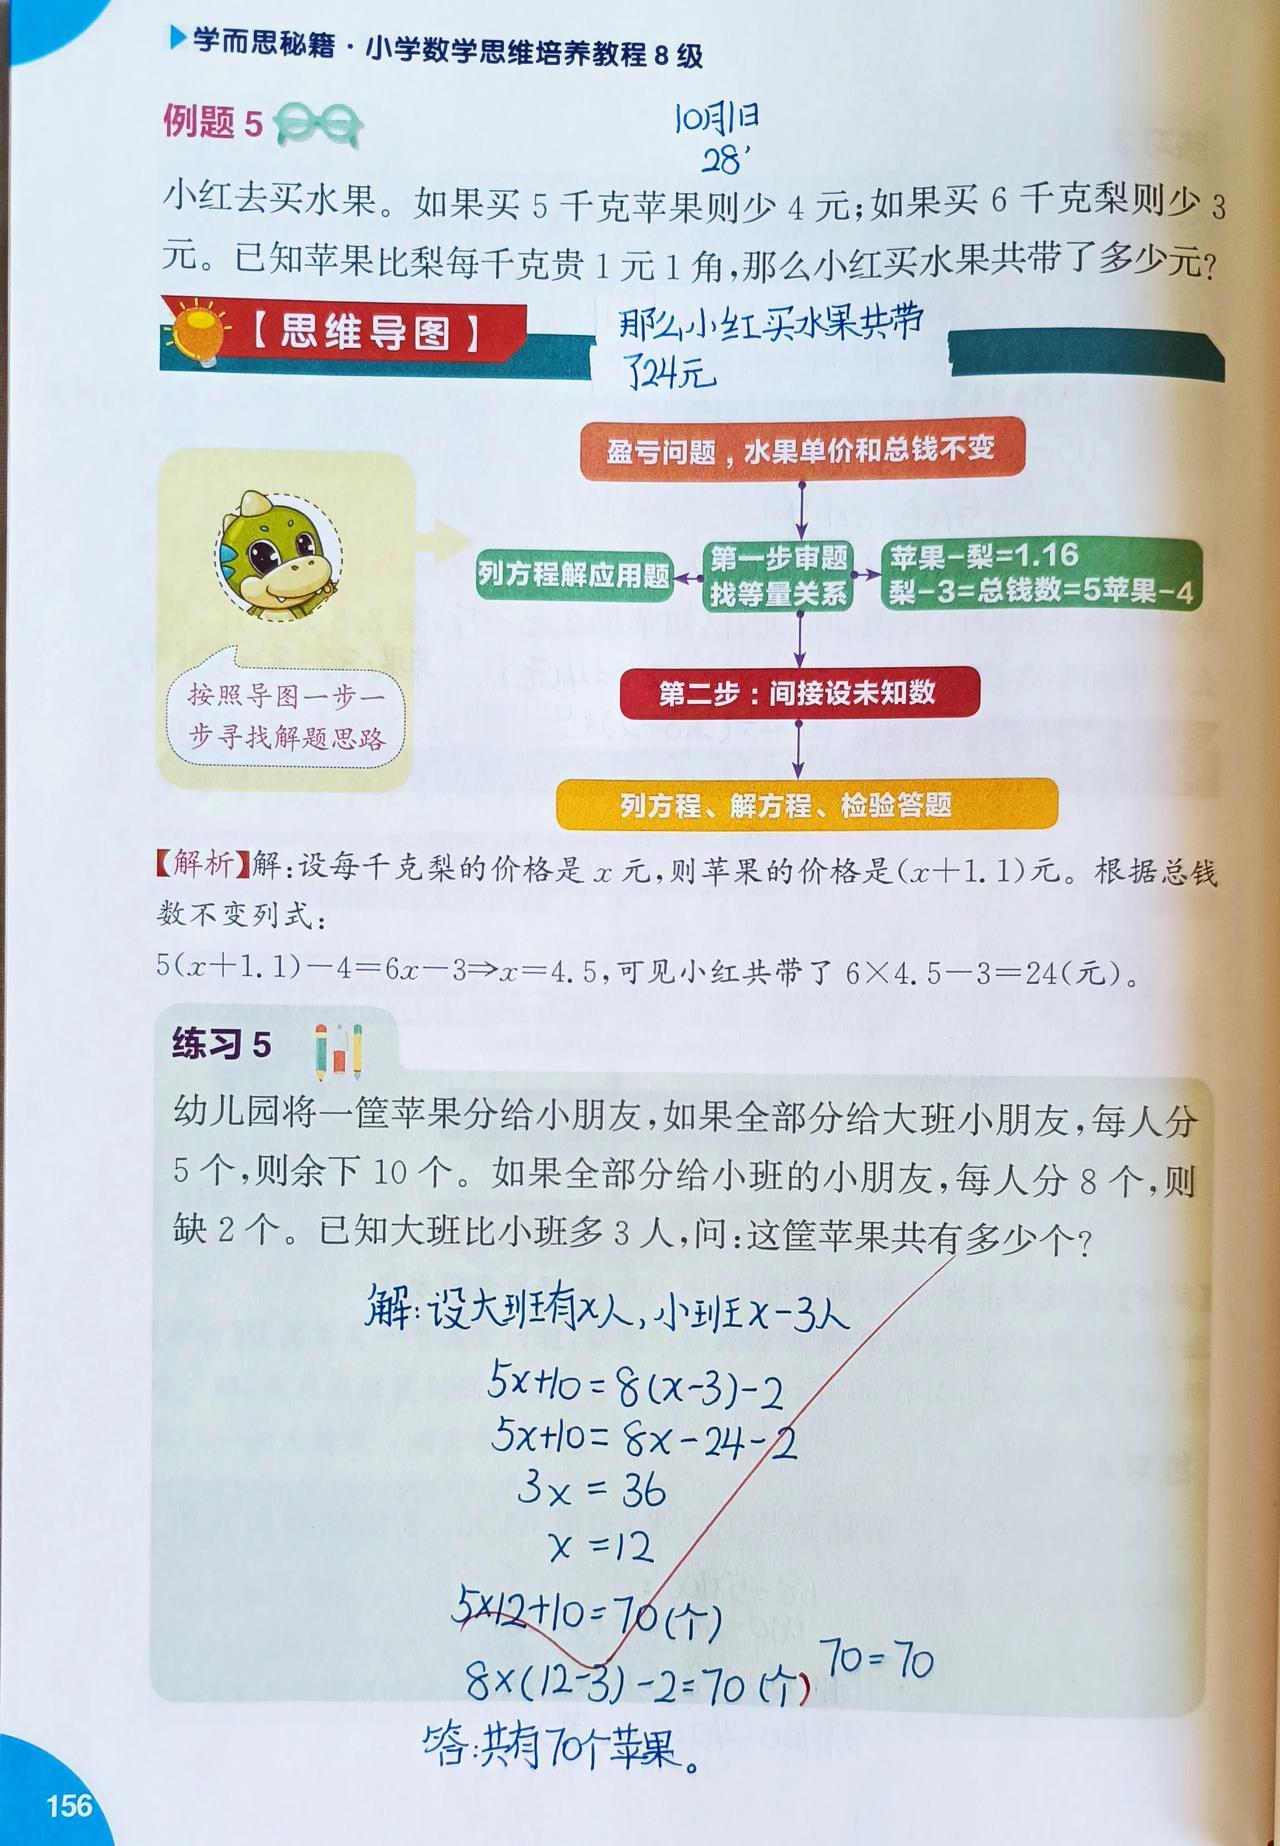 学而思秘籍·小学数学思维培养教程8级
例题5
10月1日
28'
小红去买水果。如果买5千克苹果则少4元;如果买6千克梨则少3
元。已知苹果比梨每千克贵1元1角,那么小红买水果共带了多少元?
【思维导图】
那么小红买水果共带
了24元
盈亏问题,水果单价和总钱不变
列方程解应用题
第一步审题
找等量关系
苹果-梨=1.16
梨-3=总钱数=5苹果-4
第二步:间接设未知数
列方程、解方程、检验答题
按照导图一步一
步寻找解题思路
【解析】解:设每千克梨的价格是x元,则苹果的价格是(x+1.1)元。根据总钱
数不变列式:
5(x+1.1)-4=6x-3⇒x=4.5,可见小红共带了6×4.5-3=24(元)。
练习5
幼儿园将一筐苹果分给小朋友,如果全部分给大班小朋友,每人分
5个,则余下10个。如果全部分给小班的小朋友,每人分8个,则
缺2个。已知大班比小班多3人,问:这筐苹果共有多少个?
解:设大班有x人,小班x-3人
5x+10=8(x-3)-2
5x+10=8x-24-2
3x=36
x=12
5×12+10=70(个)
8×(12-3)-2=70(个)
70=70
答:共有70个苹果。
156